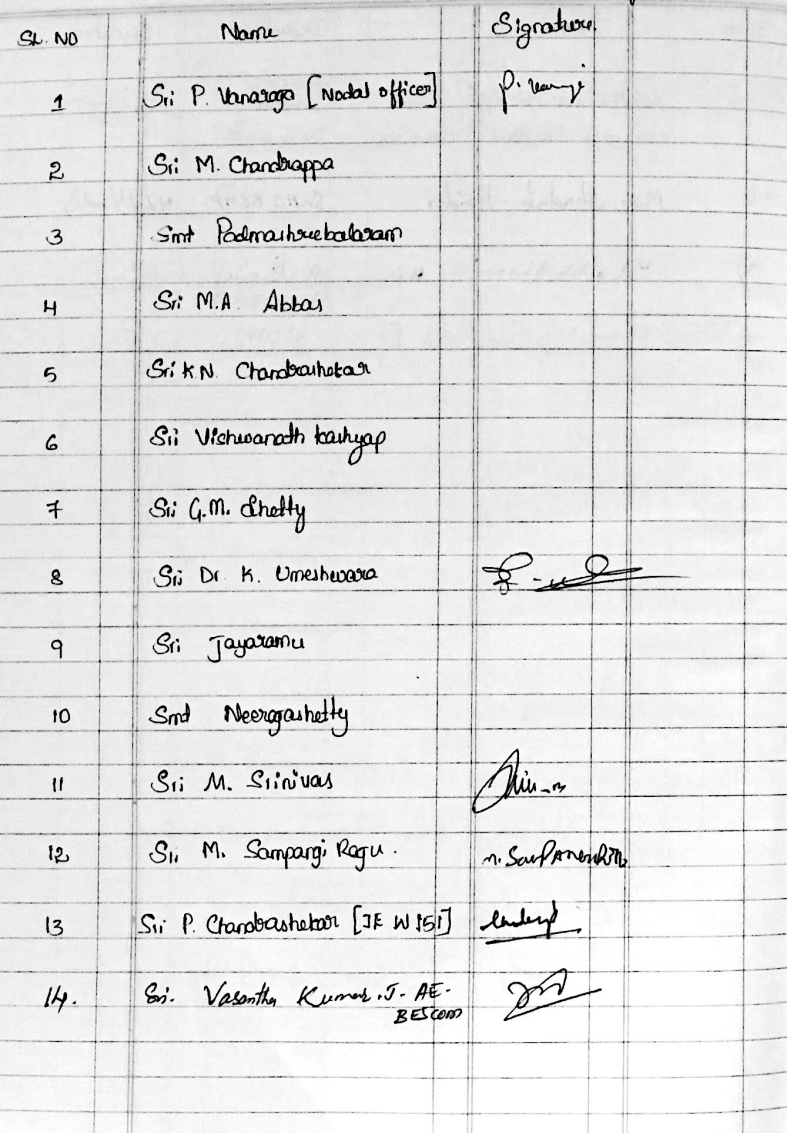 SL. NO Name Signature.
1 Sri P. Vanaraga [Nodal officer]
2 Sri M. Chandrappa
3 Smt Padmashreebalaram
4 Sri M.A. Abbas
5 Sri K N. Chandrashekar
6 Sri Vishwanath kashyap
7 Sri G.M. Shetty
8 Sri Dr. K. Umeshwara
9 Sri Jayaramu
10 Smt Neeragashetty
11 Sri M. Srinivas
12 Sri M. Sampangi Ragu.
13 Sri P. Chandrashekar [JE W 151]
14. Sri. Vasantha Kumar. J - AE-
BESCOM